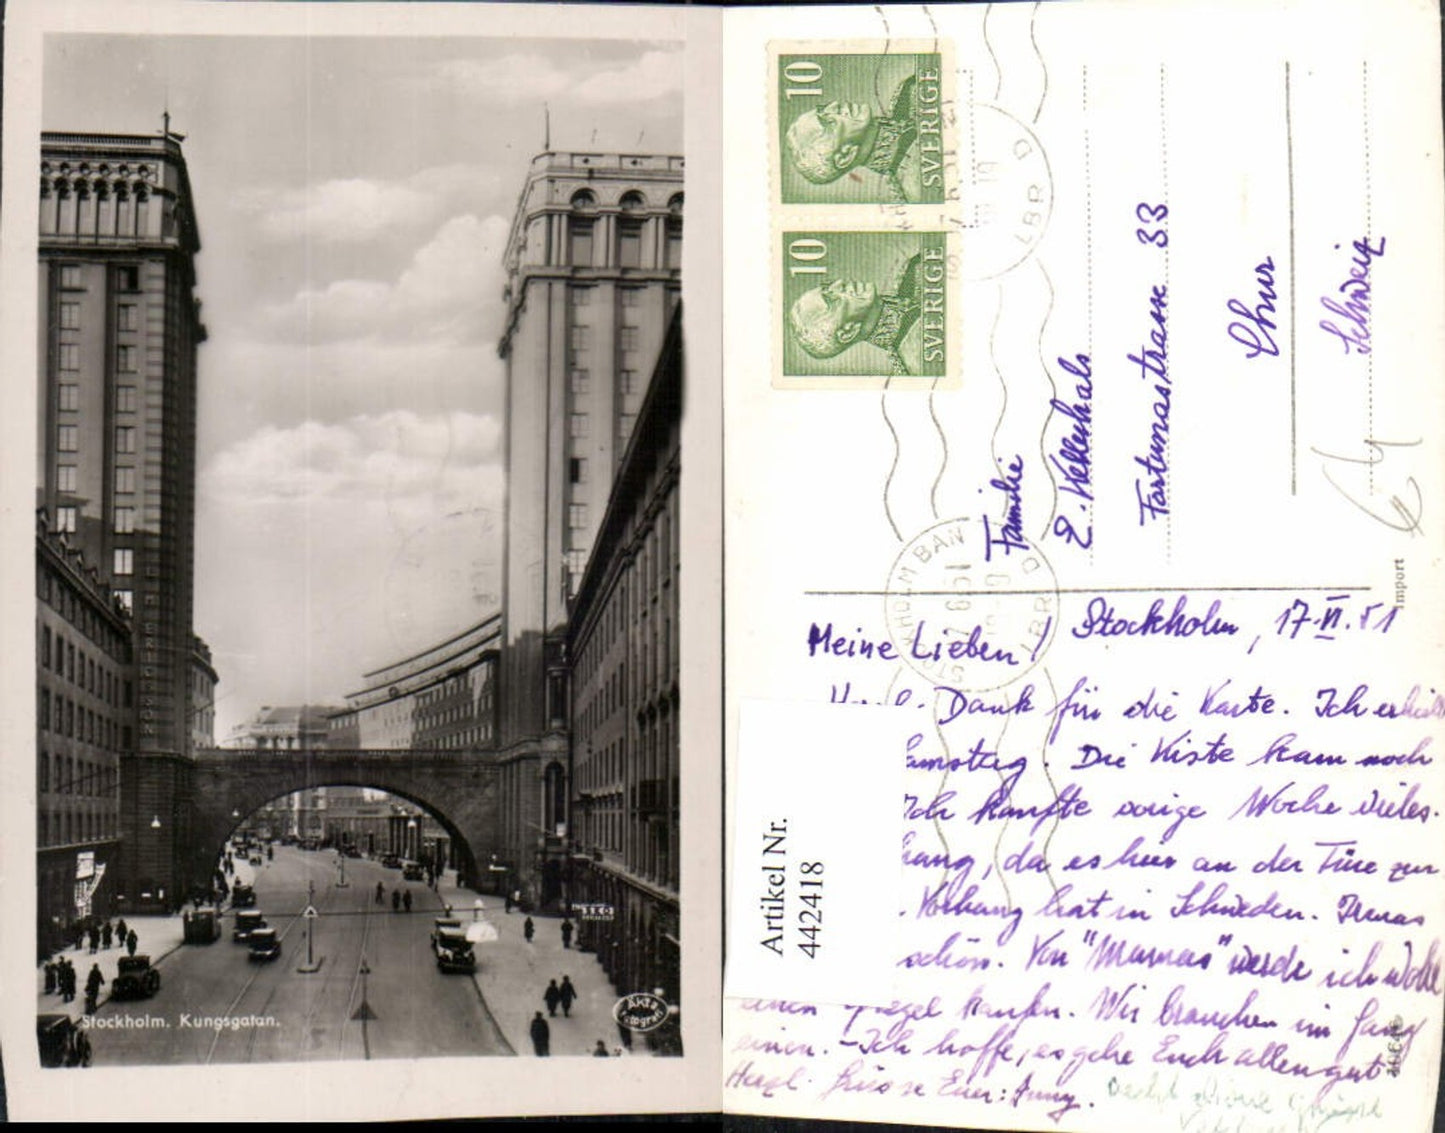 Stockholm. Kungsgatan.
ÄKTA
fotografi
10
SVERIGE
10
SVERIGE
Familie
E. Kellenhals
Fortunastrasse 33
Chur
Schweiz
Import
Stockholm, 17.VI.51
Meine Lieben!
Dank für die Karte. Ich erhielt
Die Kiste kam noch
Ich kaufte vorige Woche vieles.
da es hier an der Türe zur
Vorhang hat in Schweden.
schön. Von "Mamas" werde ich wohl
einen Spiegel kaufen. Wir brauchen im Gang
einen. - Ich hoffe, es gehe Euch allen gut
Herzl. Grüsse Euer:
Artikel Nr.
442418